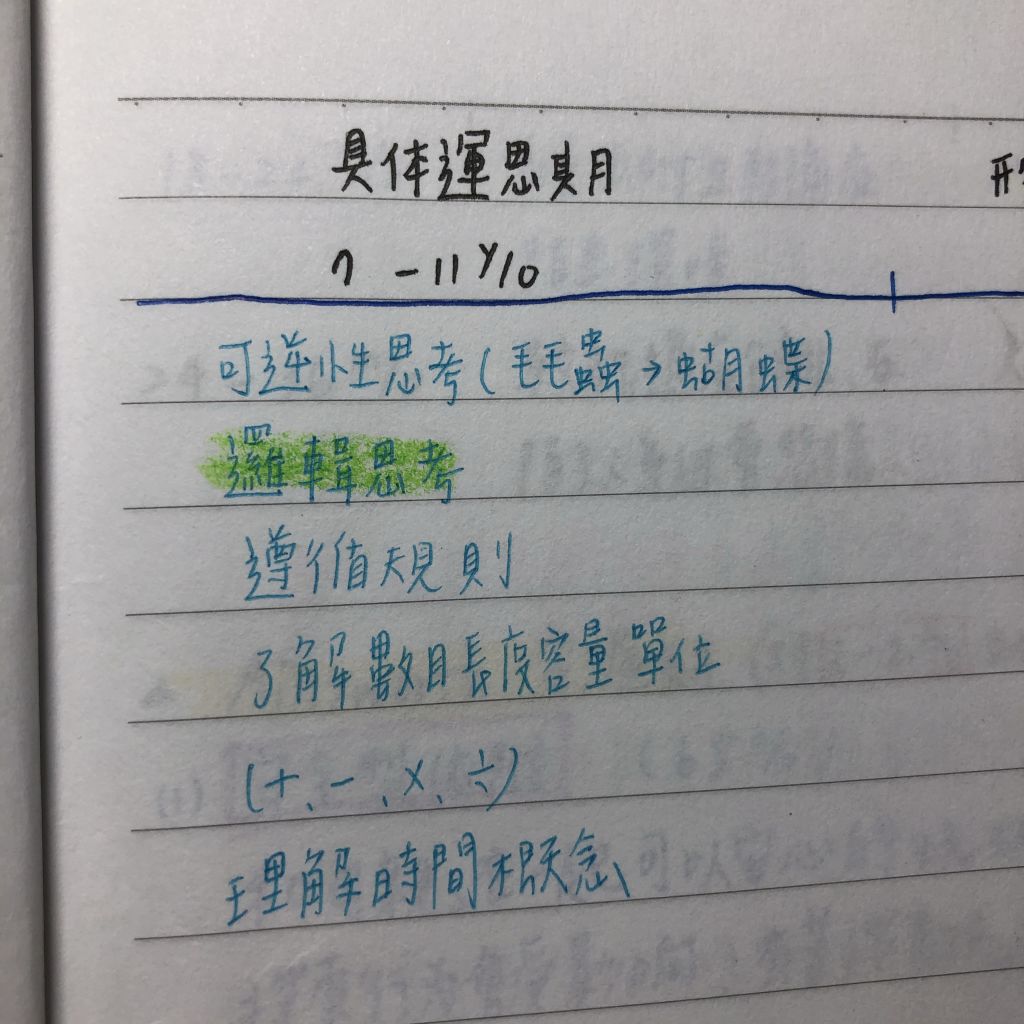 具体運思期
7 -11 y/o
可逆性思考(毛毛蟲→蝴蝶)
邏輯思考
遵循規則
了解數目長度容量單位
(+、-、×、÷)
理解時間概念